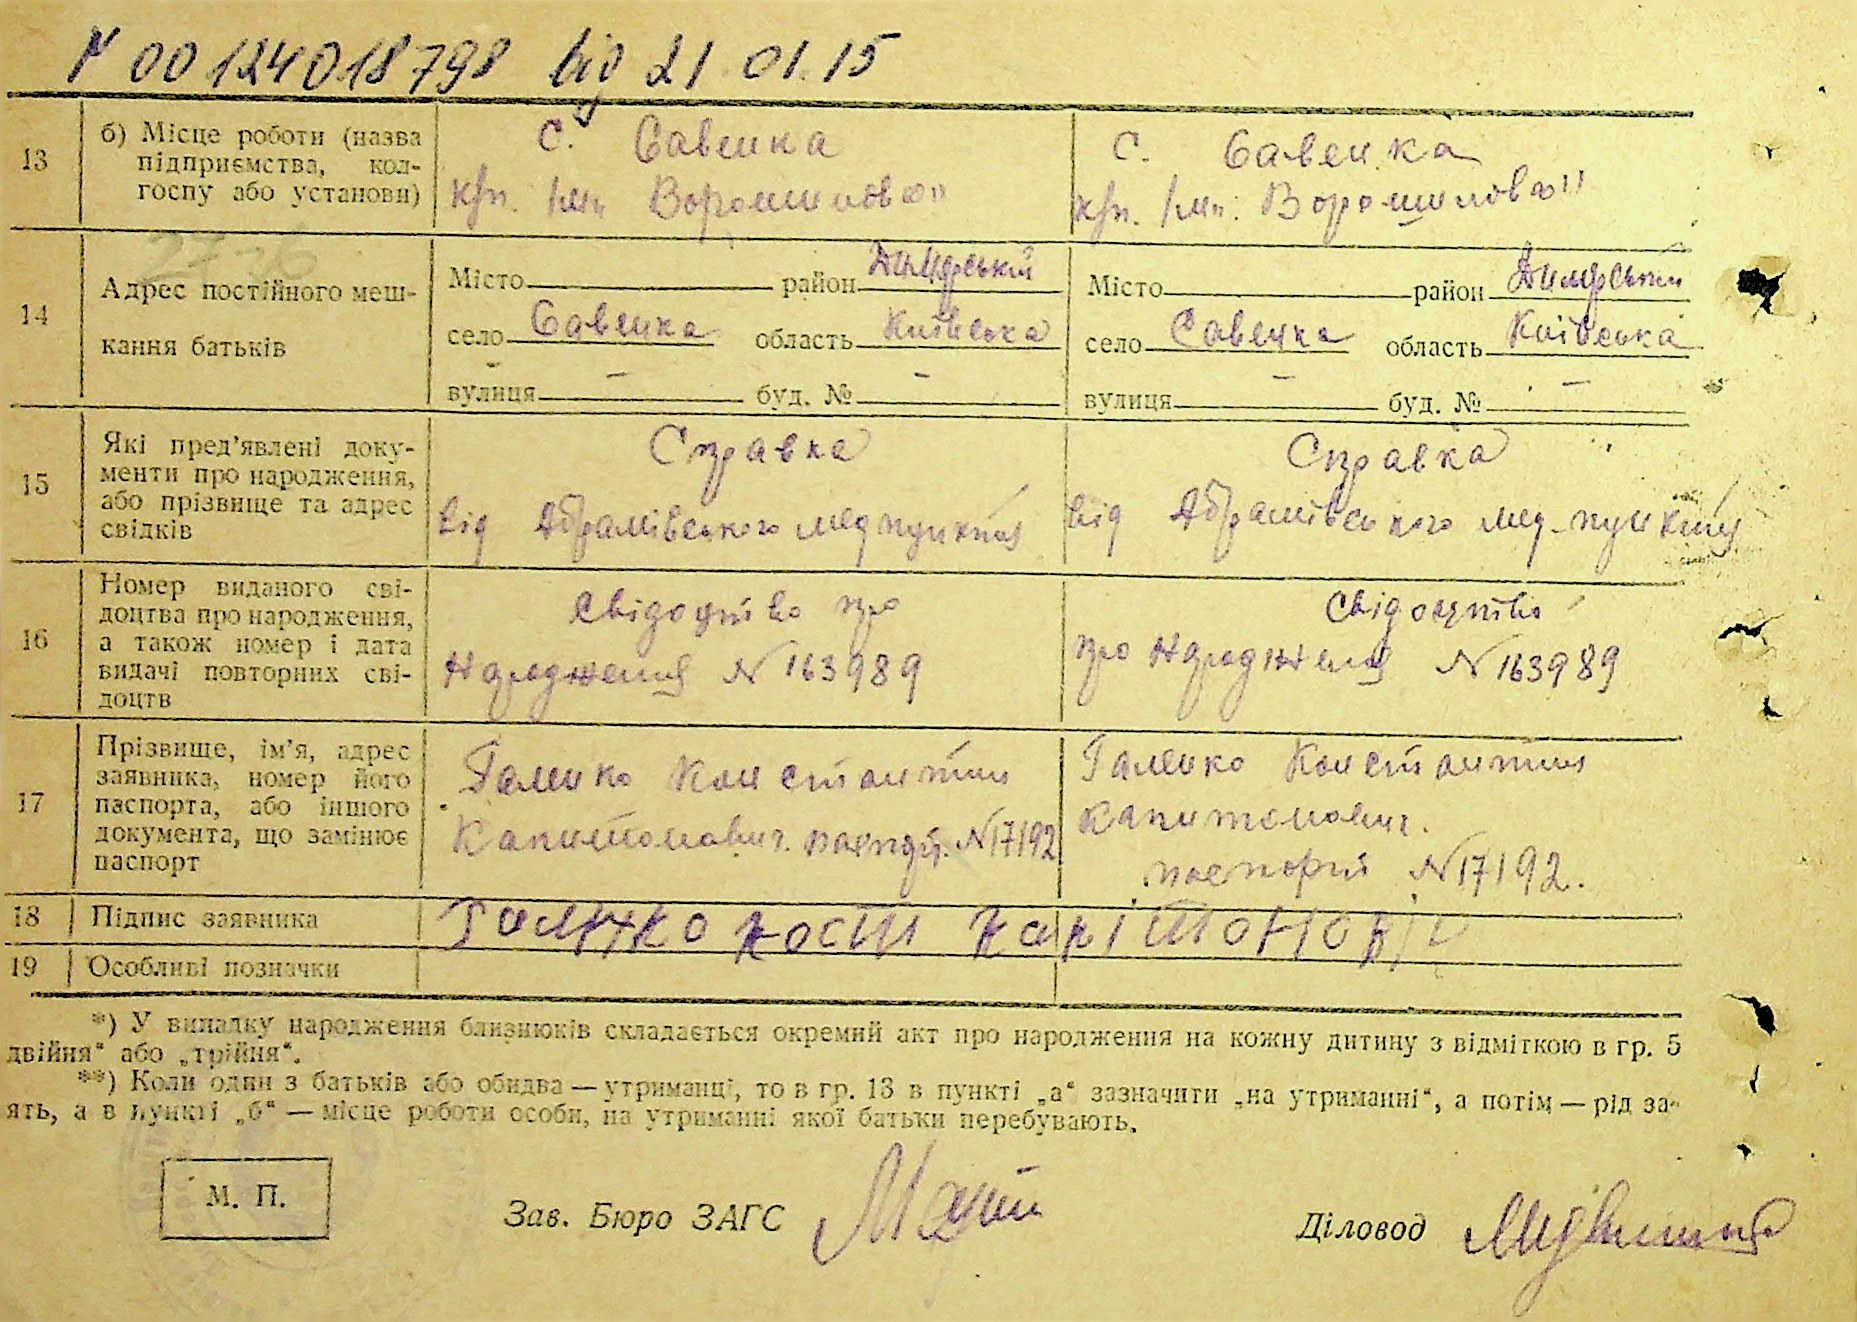 N 00124018798 від 21 01.15
13
б) Місце роботи (назва
підприємства, кол-
госпу або установи)
с. Савенка
к/гп. Ім„ Ворошилова"
с. Савенка
к/гп. Ім„ Ворошилова"
14
Адрес постійного меш-
кання батьків
Місто район Димерський
село Савенка область Київська
вулиця – буд. № –
Місто район Димерський
село Савенка область Київська
вулиця – буд. № –
15
Які пред'явлені доку-
менти про народження,
або прізвище та адрес
свідків
Справка
від Абрамівського медпункта
Справка
від Абрамівського мед-пункта
16
Номер виданого сві-
доцтва про народження,
а також номер і дата
видачі повторних сві-
доцтв
Свідоцтво про
народження N 163989
Свідоцтво
про народження N 163989
17
Прізвище, ім'я, адрес
заявника, номер його
паспорта, або іншого
документа, що замінює
паспорт
Галенко Константин
Капитонович. N 17192
Галенко Константин
Капитонович.
паспорт N 17192.
18
Підпис заявника
Галенко Кост
19
Особливі позначки
*) У випадку народження близнюків складається окремий акт про народження на кожну дитину з відміткою в гр. 5
двійня" або „трійня".
**) Коли один з батьків або обидва — утриманці, то в гр. 13 в пункті „а" зазначити „на утриманні", а потім — рід за-
ять, а в пункті „б" — місце роботи особи, на утриманні якої батьки перебувають.
М. П.
Зав. Бюро ЗАГС
Діловод